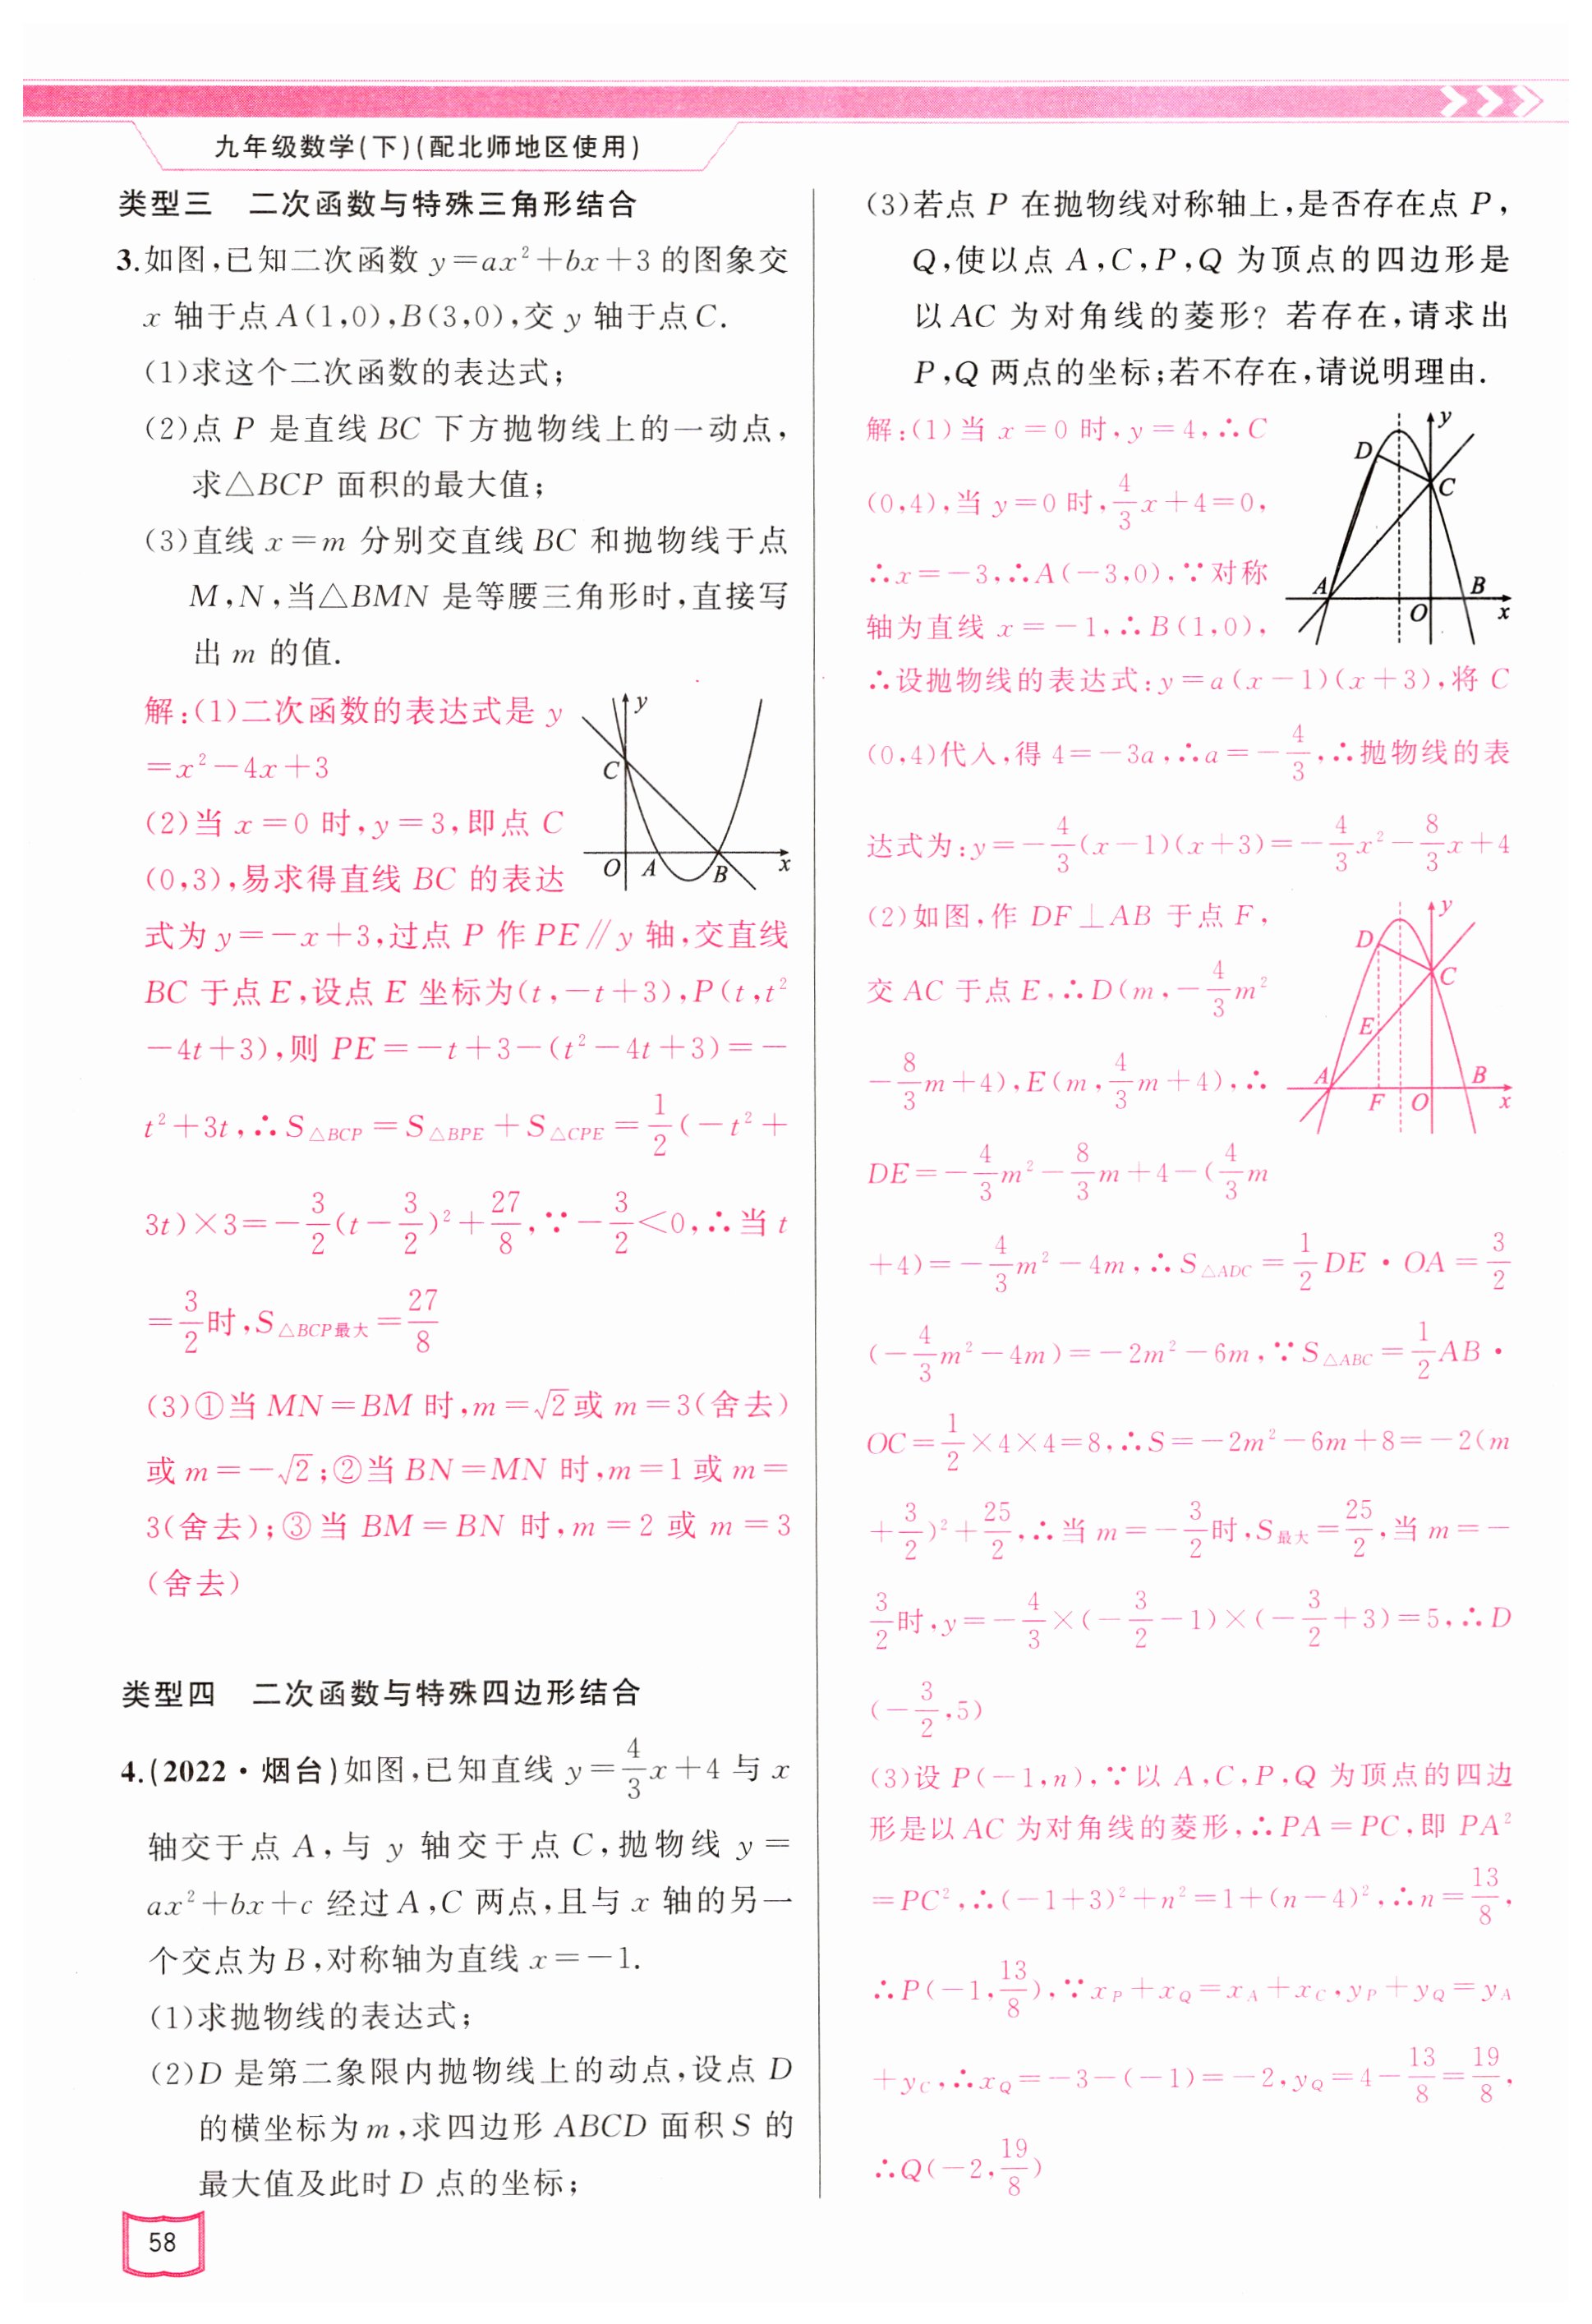 九年级数学(下)(配北师地区使用)
类型三 二次函数与特殊三角形结合
3.如图,已知二次函数 y=ax²+bx+3 的图象交
x 轴于点 A(1,0),B(3,0),交 y 轴于点 C.
(1)求这个二次函数的表达式;
(2)点 P 是直线 BC 下方抛物线上的一动点,
求△BCP 面积的最大值;
(3)直线 x=m 分别交直线 BC 和抛物线于点
M,N,当△BMN 是等腰三角形时,直接写
出 m 的值.
解:(1)二次函数的表达式是 y
=x²-4x+3
(2)当 x=0 时,y=3,即点 C
(0,3),易求得直线 BC 的表达
式为 y=-x+3,过点 P 作 PE∥y 轴,交直线
BC 于点 E,设点 E 坐标为(t,-t+3),P(t,t²
-4t+3),则 PE=-t+3-(t²-4t+3)=-
t²+3t,∴S△BCP=S△BPE+S△CPE=1/2(-t²+
3t)×3=-3/2(t-3/2)²+27/8,∵-3/2<0,∴当 t
=3/2时,S△BCP最大=27/8
(3)①当 MN=BM 时,m=√2或 m=3(舍去)
或 m=-√2;②当 BN=MN 时,m=1 或 m=
3(舍去);③当 BM=BN 时,m=2 或 m=3
(舍去)
y
C
O
A
B
x
类型四 二次函数与特殊四边形结合
4.(2022·烟台)如图,已知直线 y=4/3x+4 与 x
轴交于点 A,与 y 轴交于点 C,抛物线 y=
ax²+bx+c 经过 A,C 两点,且与 x 轴的另一
个交点为 B,对称轴为直线 x=-1.
(1)求抛物线的表达式;
(2)D 是第二象限内抛物线上的动点,设点 D
的横坐标为 m,求四边形 ABCD 面积 S 的
最大值及此时 D 点的坐标;
(3)若点 P 在抛物线对称轴上,是否存在点 P,
Q,使以点 A,C,P,Q 为顶点的四边形是
以 AC 为对角线的菱形? 若存在,请求出
P,Q 两点的坐标;若不存在,请说明理由.
解:(1)当 x=0 时,y=4,∴C
(0,4),当 y=0 时,4/3x+4=0,
∴x=-3,∴A(-3,0),∵对称
轴为直线 x=-1,∴B(1,0),
∴设抛物线的表达式:y=a(x-1)(x+3),将 C
(0,4)代入,得 4=-3a,∴a=-4/3,∴抛物线的表
达式为:y=-4/3(x-1)(x+3)=-4/3x²-8/3x+4
y
D
C
A
B
O
x
(2)如图,作 DF⊥AB 于点 F,
交 AC 于点 E,∴D(m,-4/3m²
-8/3m+4),E(m,4/3m+4),∴
DE=-4/3m²-8/3m+4-(4/3m
+4)=-4/3m²-4m,∴S△ADC=1/2DE·OA=3/2
(-4/3m²-4m)=-2m²-6m,∵S△ABC=1/2AB·
OC=1/2×4×4=8,∴S=-2m²-6m+8=-2(m
+3/2)²+25/2,∴当 m=-3/2时,S最大=25/2,当 m=-
3/2时,y=-4/3×(-3/2-1)×(-3/2+3)=5,∴D
(-3/2,5)
y
D
C
E
A
B
F
O
x
(3)设 P(-1,n),∵以 A,C,P,Q 为顶点的四边
形是以 AC 为对角线的菱形,∴PA=PC,即 PA²
=PC²,∴(-1+3)²+n²=1+(n-4)²,∴n=13/8,
∴P(-1,13/8),∵xP+xQ=xA+xC,yP+yQ=yA
+yC,∴xQ=-3-(-1)=-2,yQ=4-13/8=19/8,
∴Q(-2,19/8)
58